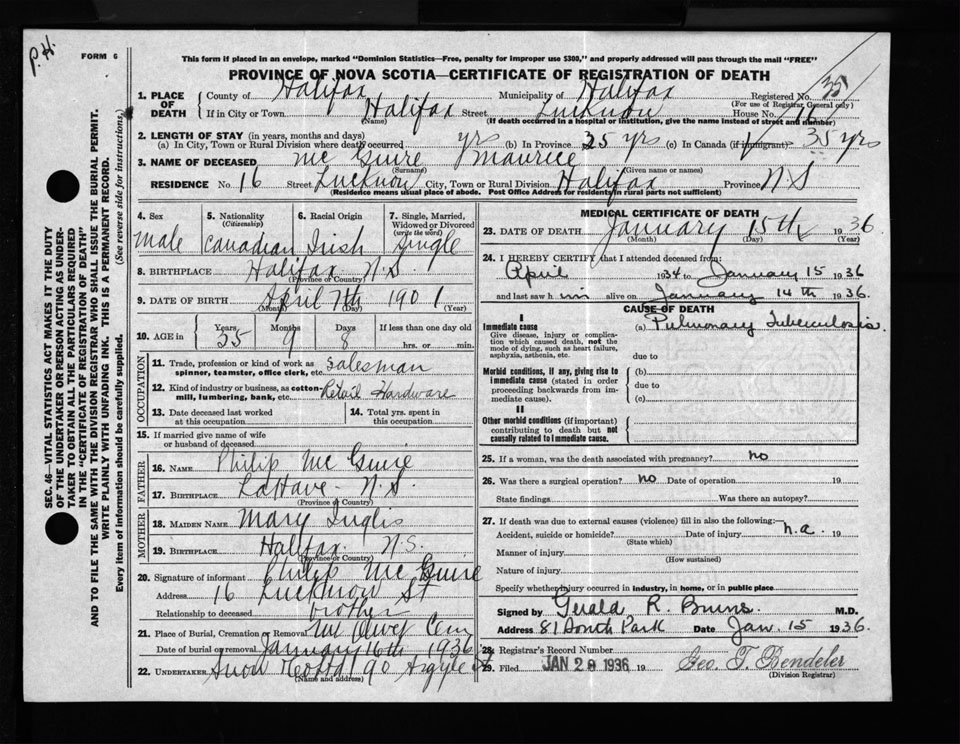 P.H.
FORM 6
This form if placed in an envelope, marked "Dominion Statistics—Free, penalty for improper use $300," and properly addressed will pass through the mail "FREE"
PROVINCE OF NOVA SCOTIA—CERTIFICATE OF REGISTRATION OF DEATH
SEC. 46—VITAL STATISTICS ACT MAKES IT THE DUTY
OF THE UNDERTAKER OR PERSON ACTING AS UNDER-
TAKER TO OBTAIN ALL THE PARTICULARS REQUIRED
IN THE "CERTIFICATE OF REGISTRATION OF DEATH"
AND TO FILE THE SAME WITH THE DIVISION REGISTRAR WHO SHALL ISSUE THE BURIAL PERMIT.
WRITE PLAINLY WITH UNFADING INK. THIS IS A PERMANENT RECORD.
Every item of information should be carefully supplied. (See reverse side for instructions.)
1. PLACE OF DEATH County of Halifax Municipality of Halifax Registered No. 35
(For use of Registrar General only)
If in City or Town Halifax Street Lucknow House No. 16
(Name) (If death occurred in a hospital or institution, give the name instead of street and number)
2. LENGTH OF STAY (in years, months and days)
(a) In City, Town or Rural Division where death occurred yrs (b) In Province 35 yrs (c) In Canada (if immigrant) 35 yrs
3. NAME OF DECEASED Mc Guire Maurice
(Surname) (Given name or names)
RESIDENCE No. 16 Street Lucknow City, Town or Rural Division Halifax Province N.S
(Residence means usual place of abode. Post Office Address for residents in rural parts not sufficient)
4. Sex 5. Nationality (Citizenship) 6. Racial Origin 7. Single, Married, Widowed or Divorced (write the word)
Male Canadian Irish Single
8. BIRTHPLACE Halifax N.S.
(Province or Country)
9. DATE OF BIRTH April 7th 1901
(Month) (Day) (Year)
10. AGE in Years Months Days If less than one day old
35 9 8 hrs. or min.
OCCUPATION
11. Trade, profession or kind of work as spinner, teamster, office clerk, etc. Salesman
12. Kind of industry or business, as cotton-mill, lumbering, bank, etc. Retail Hardware
13. Date deceased last worked at this occupation 14. Total yrs. spent in this occupation
15. If married give name of wife or husband of deceased
FATHER
16. NAME Philip Mc Guire
17. BIRTHPLACE LaHave - N.S.
(Province or Country)
MOTHER
18. MAIDEN NAME Mary Inglis
19. BIRTHPLACE Halifax N.S.
(Province or Country)
20. Signature of informant Philip Mc Guire
Address 16 Lucknow St
Relationship to deceased brother
21. Place of Burial, Cremation or Removal Mt Olivet Cem
Date of burial or removal January 16th 1936
22. UNDERTAKER Snow 90 Argyle St
(Name and address)
MEDICAL CERTIFICATE OF DEATH
23. DATE OF DEATH January 15th 1936
(Month) (Day) (Year)
24. I HEREBY CERTIFY that I attended deceased from:
April 1934 to January 15 1936
and last saw him alive on January 14th 1936.
CAUSE OF DEATH
I
Immediate cause (a) Pulmonary Tuberculosis
Give disease, injury or complication which caused death, not the mode of dying, such as heart failure, asphyxia, asthenia, etc.
due to
Morbid conditions, if any, giving rise to immediate cause (stated in order proceeding backwards from immediate cause).
(b)
due to
(c)
II
Other morbid conditions (if important) contributing to death but not causally related to immediate cause.
25. If a woman, was the death associated with pregnancy? no
26. Was there a surgical operation? no Date of operation 19
State findings Was there an autopsy?
27. If death was due to external causes (violence) fill in also the following:—
Accident, suicide or homicide? Date of injury n.a. 19
(State which)
Manner of injury
(How sustained)
Nature of injury
Specify whether injury occurred in industry, in home, or in public place
Signed by Gerald R. Burns. M.D.
Address 81 South Park Date Jan. 15 1936.
28. Registrar's Record Number
29. Filed JAN 28 1936 19 Geo. T. Bendeler
(Division Registrar)